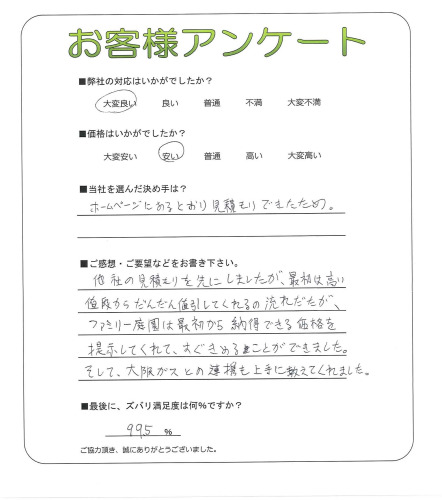 お客様アンケート
■弊社の対応はいかがでしたか?
大変良い 良い 普通 不満 大変不満
■価格はいかがでしたか?
大変安い 安い 普通 高い 大変高い
■当社を選んだ決め手は?
ホームページにあるとおり見積もりできたため。
■ご感想・ご要望などをお書き下さい。
他社の見積もりを先にしましたが、最初は高い
値段からだんだん値引してくれるの流れだが、
ファミリー庭園は最初から納得できる価格を
提示してくれて、すぐきめることができました。
そして、大阪ガスとの連携も上手に教えてくれました。
■最後に、ズバリ満足度は何%ですか?
99.5 %
ご協力頂き、誠にありがとうございました。